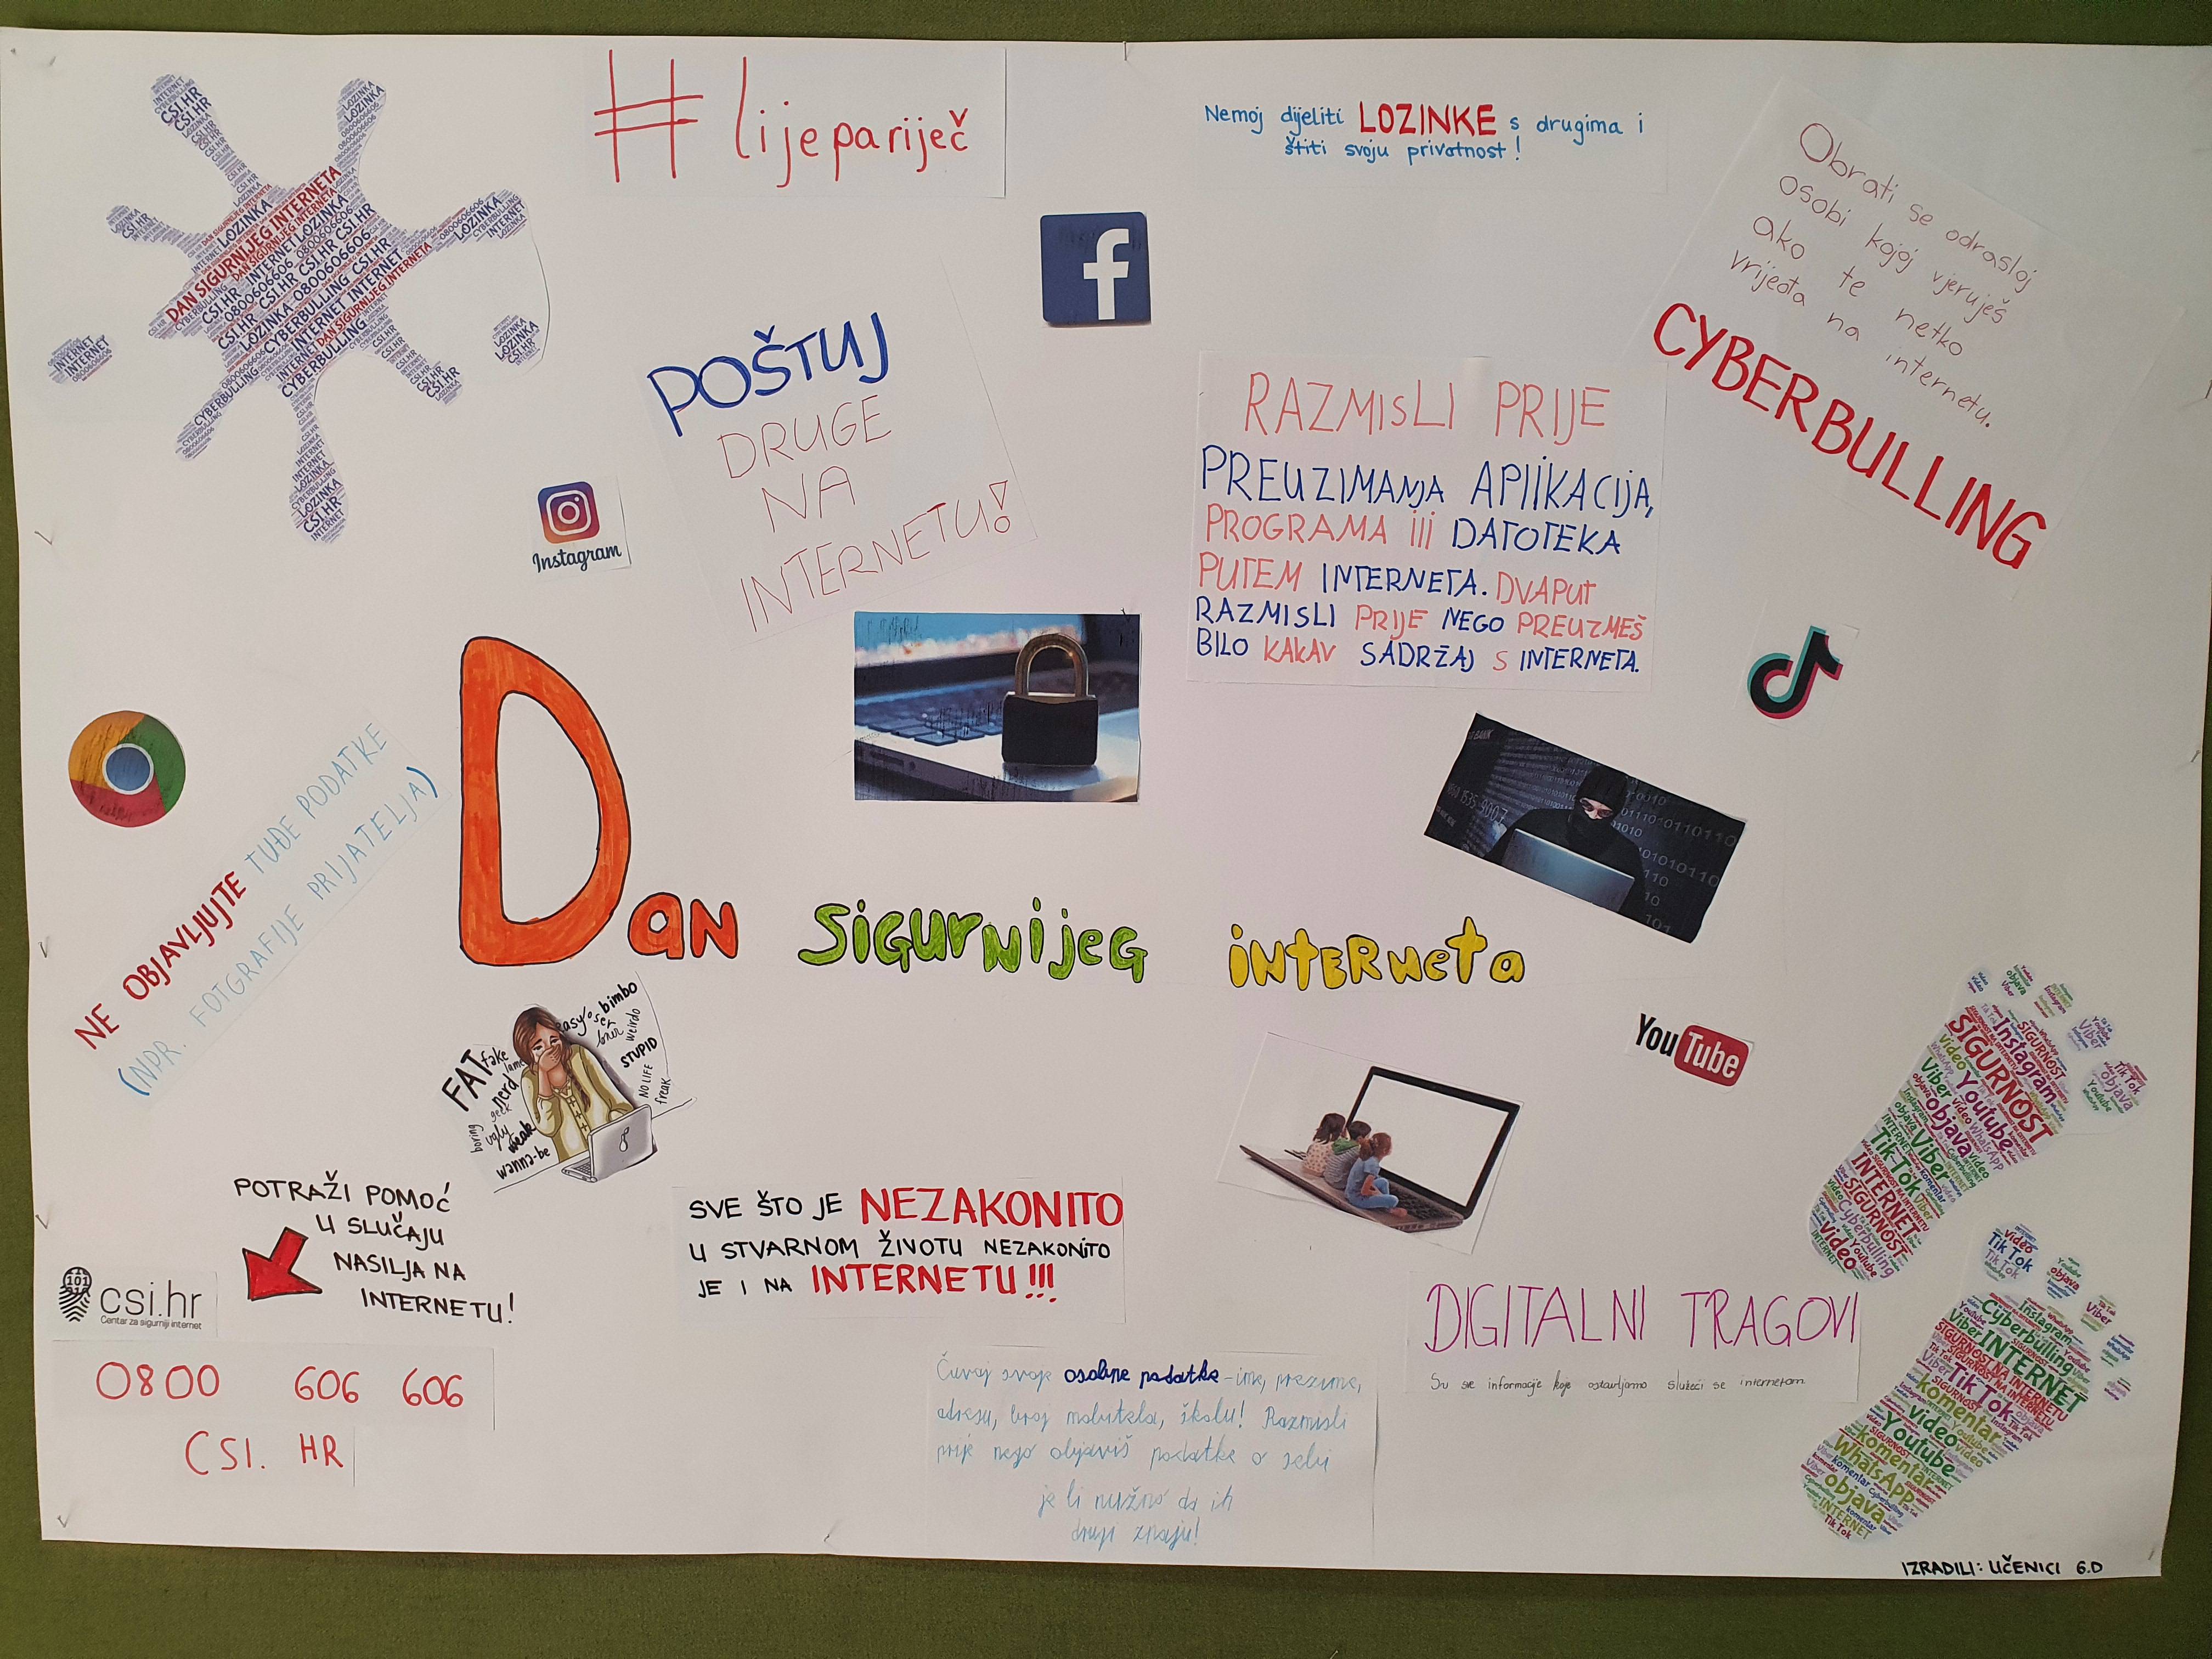 #lijepariječ
Nemoj dijeliti LOZINKE s drugima i
štiti svoju privatnost!
Obrati se odrasloj
osobi kojoj vjeruješ
ako te netko
vrijeđa na internetu.
CYBERBULLING
DAN SIGURNIJEG INTERNETA
LOZINKA
CSI.HR
INTERNET
0800606606
CYBERBULLING
POŠTUJ
DRUGE
NA
INTERNETU!
Instagram
RAZMISLI PRIJE
PREUZIMANJA APLIKACIJA,
PROGRAMA ili DATOTEKA
PUTEM INTERNETA. DVAPUT
RAZMISLI PRIJE NEGO PREUZMEŠ
BILO KAKAV SADRŽAJ S INTERNETA.
NE OBJAVLJUJTE TUĐE PODATKE
(NPR. FOTGRAFIJE PRIJATELJA)
Dan sigurnijeg interneta
FAT
fake
lame
nerd
geek
ugly
boring
weak
wanna-be
easy
loser
bimbo
weirdo
STUPID
NO LIFE
freak
YouTube
POTRAŽI POMOĆ
U SLUČAJU
NASILJA NA
INTERNETU!
csi.hr
Centar za sigurniji internet
0800 606 606
CSI. HR
SVE ŠTO JE NEZAKONITO
U STVARNOM ŽIVOTU NEZAKONITO
JE I NA INTERNETU!!!
Čuvaj svoje osobne podatke - ime, prezime,
adresu, broj mobitela, školu! Razmisli
prije nego objaviš podatke o sebi
je li nužno da ih
drugi znaju!
DIGITALNI TRAGOVI
Su sve informacije koje ostavljamo služeći se internetom
SIGURNOST
Instagram
Youtube
Video
Viber
objava
WhatsApp
Tik Tok
INTERNET
Cyberbulling
komentar
SIGURNOST NA INTERNETU
IZRADILI: UČENICI 6.D